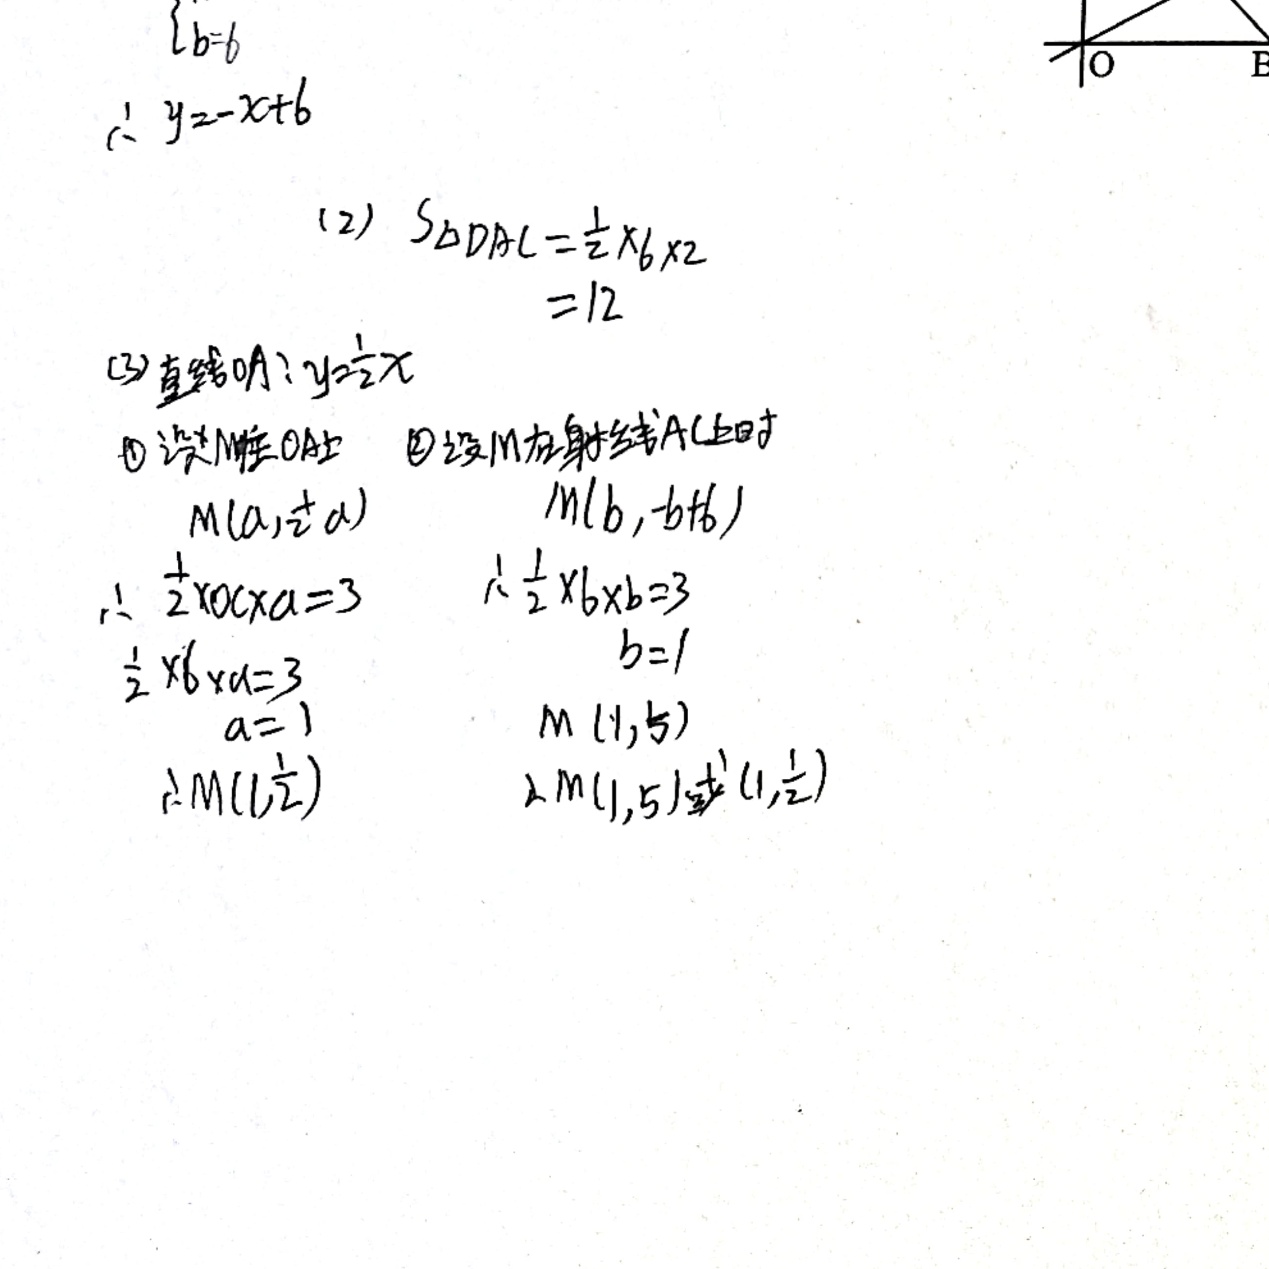 {b=6
O B
∴ y=-x+6
(2) S△DAC=1/2×6×2
=12
(3) 直线OA:y=1/2x
① 设M在OA上
M(a,1/2a)
∴ 1/2×OC×a=3
1/2×6×a=3
a=1
∴M(1,1/2)
② 设M在射线AC上时
M(b,-b+6)
∴ 1/2×6×b=3
b=1
M(1,5)
∴M(1,5)或(1,1/2)